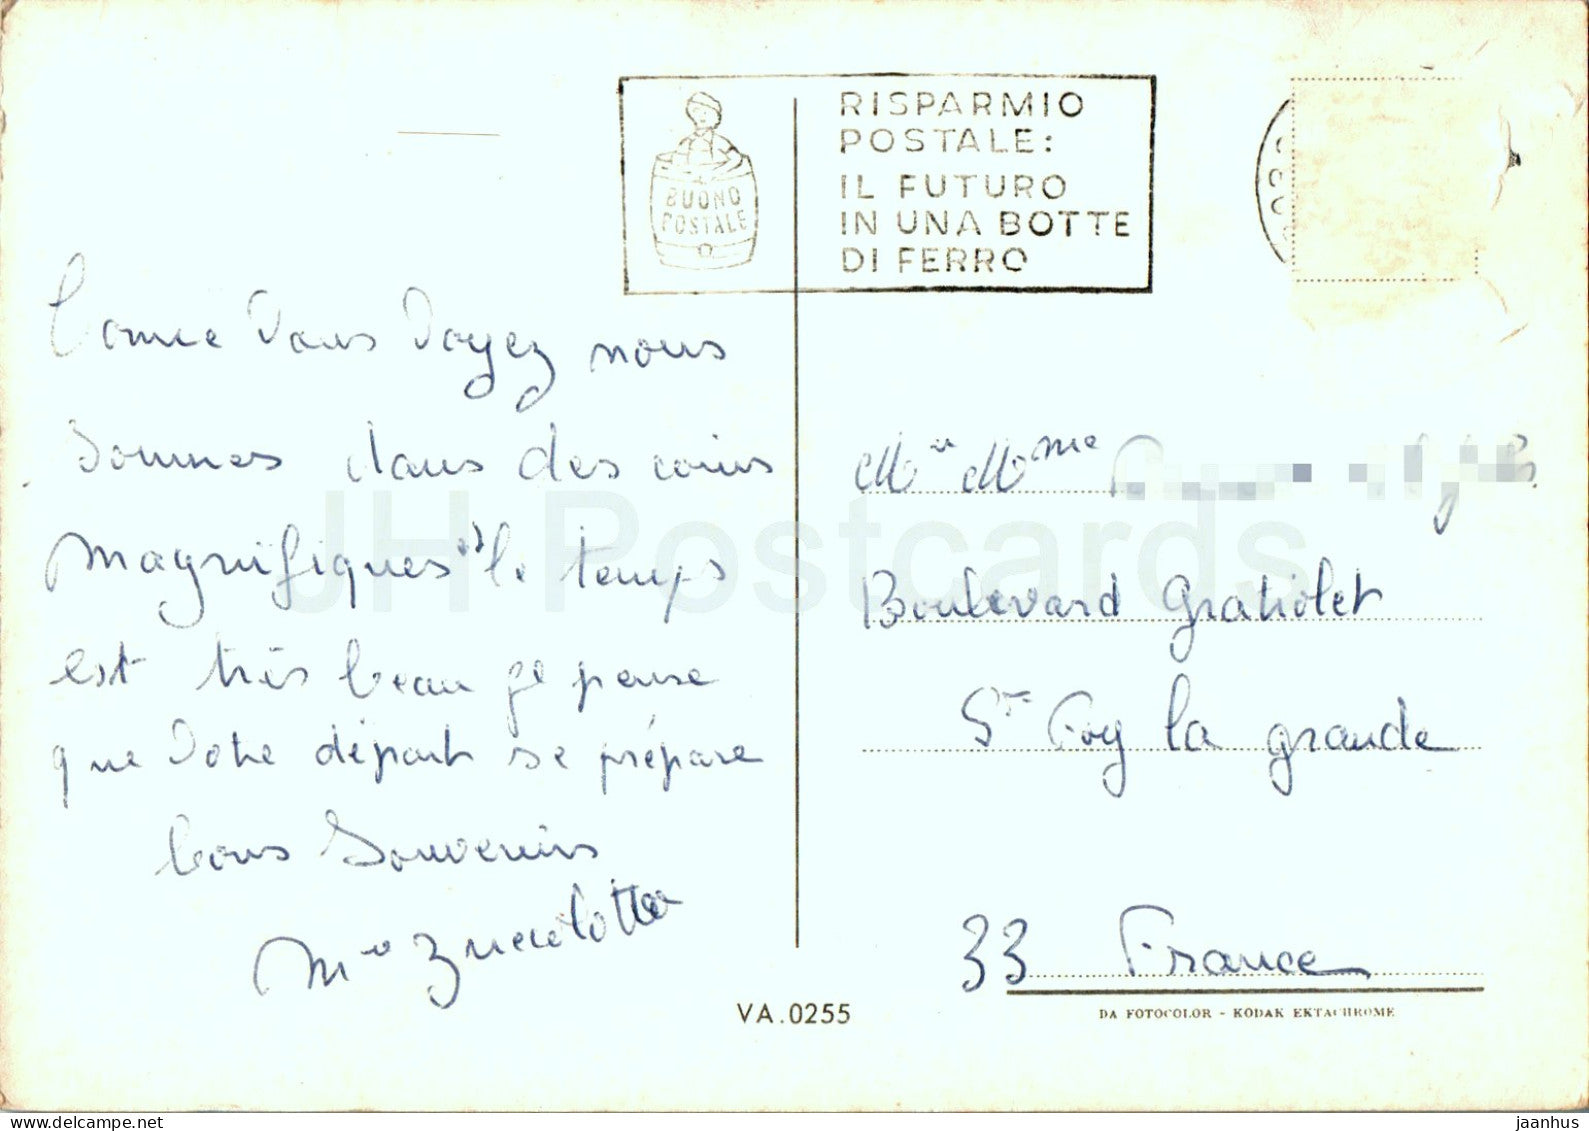 RISPARMIO
POSTALE:
IL FUTURO
IN UNA BOTTE
DI FERRO
BUONO
POSTALE
Comme Vous Voyez nous
sommes dans des coins
magnifiques le temps
est très beau je pense
que Votre départ se prépare
bons Souvenirs
Mr et Mme
Boulevard Gratiolet
Ste Foy la grande
33 France
VA.0255
DA FOTOCOLOR - KODAK EKTACHROME
JH Postcards
jaanhus